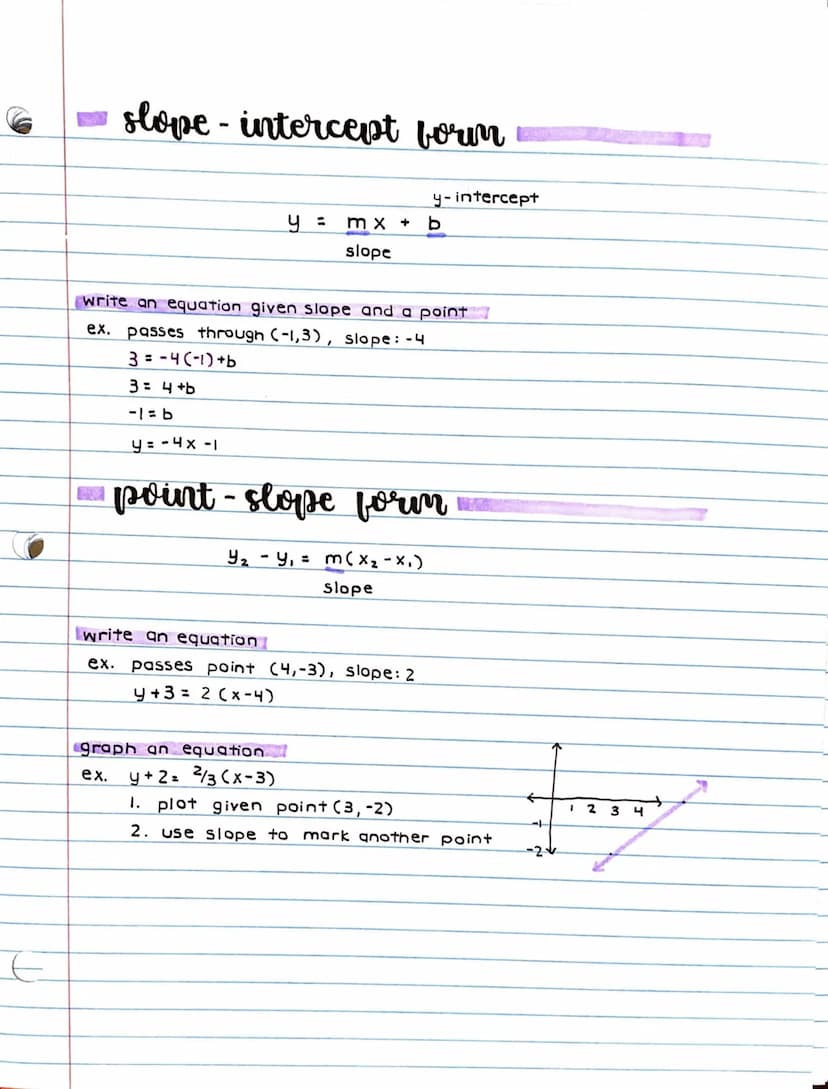 slope - intercept form
y-intercept
y = mx + b
slope
write an equation given slope and a point
ex. passes through (-1,3), slope: -4
3 = -4(-1)+b
3 = 4+b
-1 = b
y = -4x -1
point - slope form
y₂ - y₁ = m(x₂ - x₁)
slope
write an equation
ex. passes point (4,-3), slope: 2
y+3 = 2 (x-4)
graph an equation
ex. y+2= 2/3 (x-3)
1. plot given point (3, -2)
2. use slope to mark another point
1 2 3 4
-1
-2